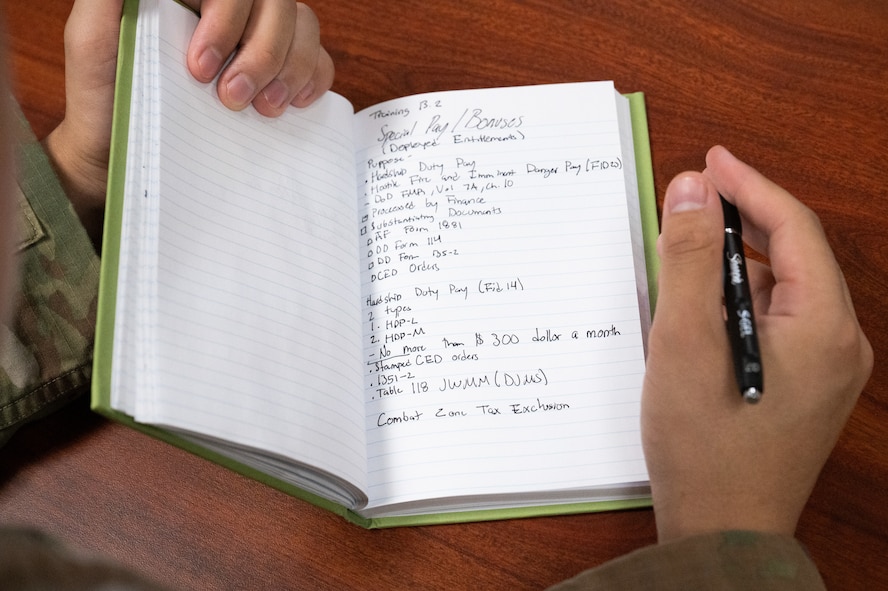 Training 13.2
Special Pay/Bonuses
(Deployed Entitlements)
Purpose-
• Hardship Duty Pay
• Hostile Fire and Imminent Danger Pay (FID 23)
- DoD FMR, Vol 7A, Ch. 10
Processed by Finance
Substantiating Documents
AF Form 1881
DD Form 114
DD Form 1351-2
CED Orders
Hardship Duty Pay (Fid. 14)
2 types
1. HDP-L
2. HDP-M
- No more than $300 dollar a month
• Stamped CED orders
• 1351-2
• Table 118 JWMM (DJMS)
Combat Zone Tax Exclusion